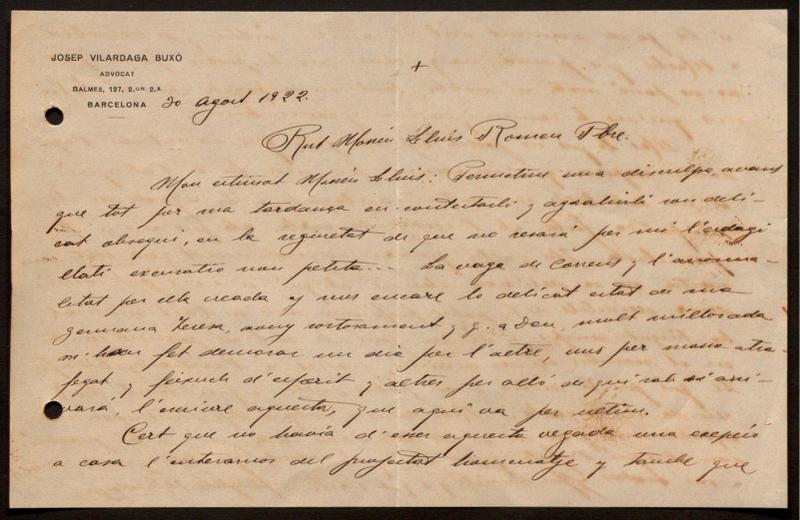 JOSEP VILARDAGA BUXÓ
ADVOCAT
BALMES, 127, 2.ON 2.A
BARCELONA
30 Agost 1922.
+
Rnt Mossén Lluís Romeu Pbre.
Mon estimat Mossén Lluis: Permetim una disculpa, avans
que tot per ma tardança en contestarli y agrahirli son deli-
cat obsequi, en la seguretat de que no resará per mi l'adagi
llatí excusatio non petita... La vaga de Correus y l'anorma-
litat per ella creada y mes encare lo delicat estat de ma
germana Teresa, avuy sortosament, y g. a Deu, molt millorada
m'han fet demorar un dia per l'altre, uns per massa atra-
fegat y feixuch d'esperit y altres per alló de qui sab si arri-
vará, l'enviar aquesta, que aqui va per ultim.
Cert que no havía d'esser aquesta vegada una excepció
a casa l'enterarnos del projectat homenatge y també que